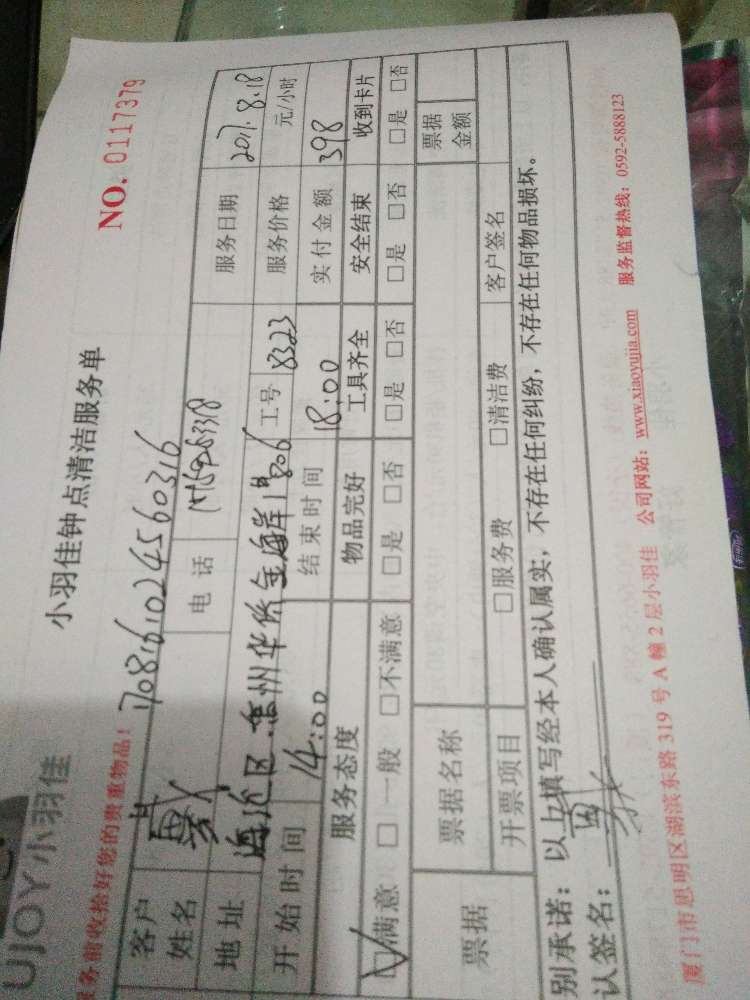 UJOY小羽佳
小羽佳钟点清洁服务单
NO. 0117379
务前收拾好您的贵重物品!
1708161024560316
客户姓名
电话
服务日期 2017.8.18
地址 海沧区 金海岸 806
工号 8323
服务价格 元/小时
开始时间 14:00 结束时间 18:00 实付金额 398
服务态度 物品完好 工具齐全 安全结束 收到卡片
☑满意 □一般 □不满意 □是 □否 □是 □否 □是 □否 □是 □否
票据 票据名称 票据金额
开票项目 □服务费 □清洁费 客户签名
别承诺:以上填写经本人确认属实,不存在任何纠纷,不存在任何物品损坏。
认签名:
厦门市思明区湖滨东路319号A幢2层小羽佳 公司网站:www.xiaoyujia.com 服务监督热线:0592-5888123